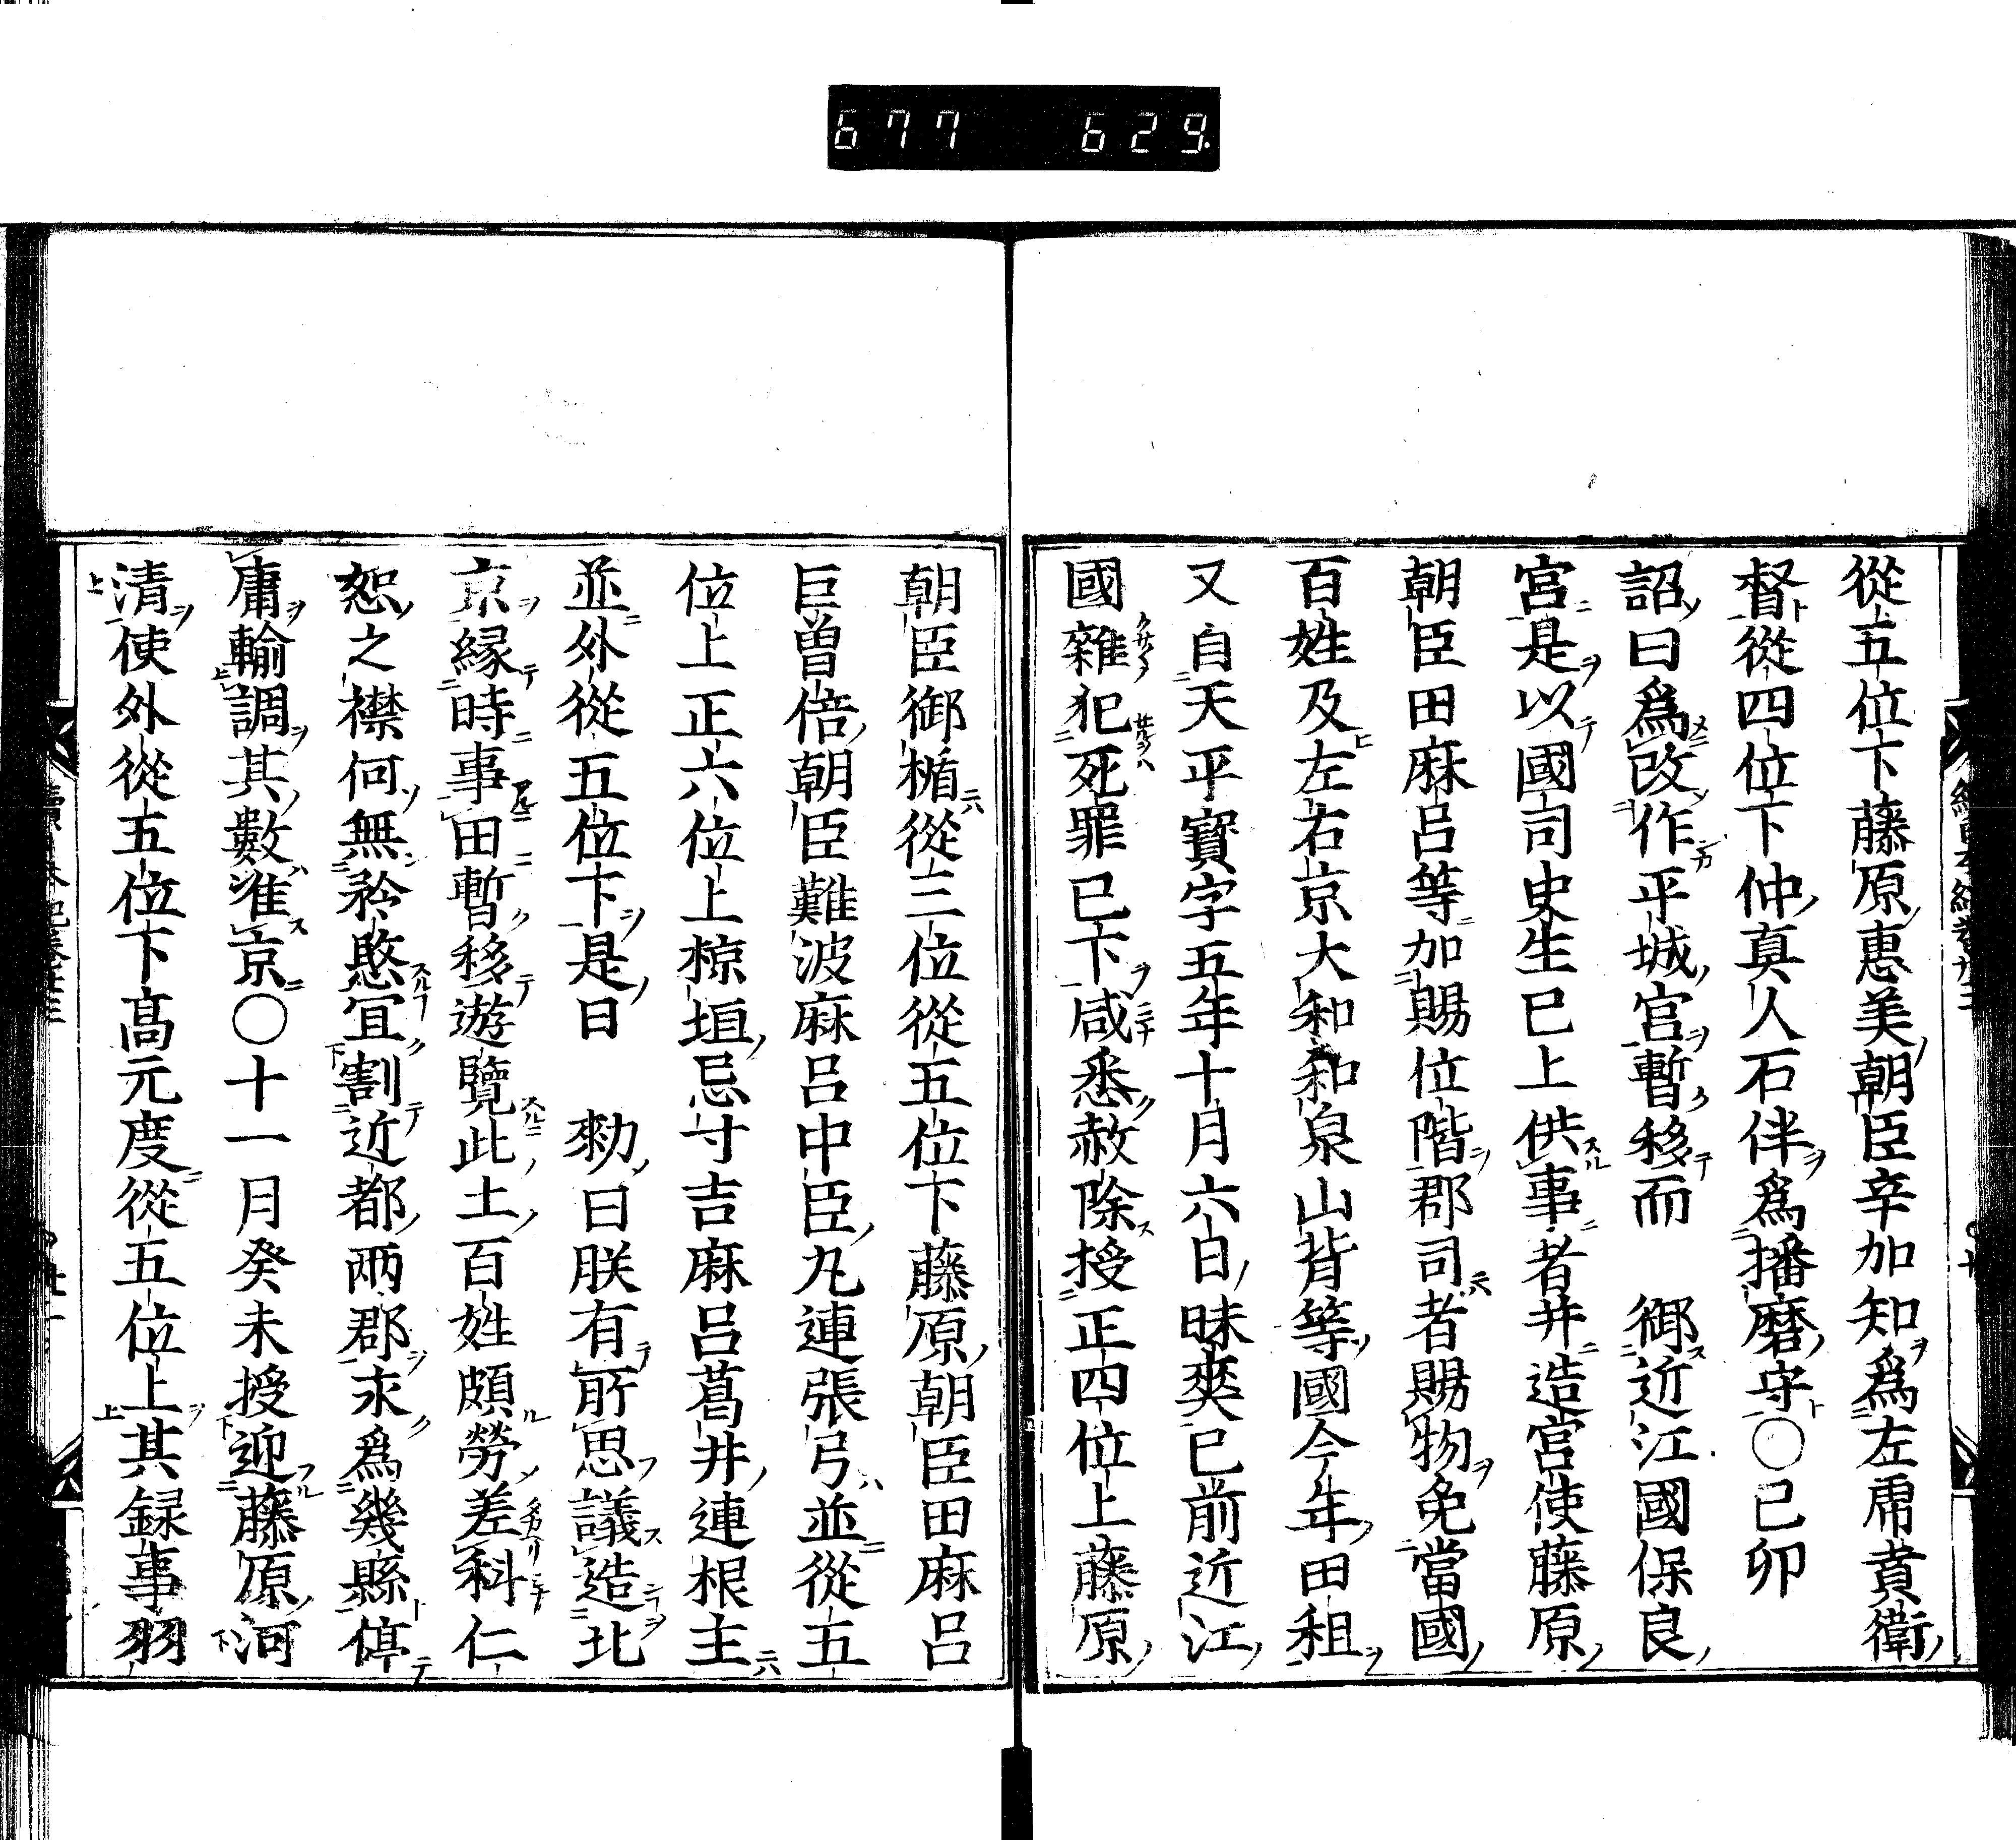 677 629.
從五位下藤原惠美朝臣辛加知爲左虎賁衛
督從四位下仲真人石伴爲播磨守〇己卯
詔曰爲改作平城宮暫移而 御近江國保良
宮是以國司史生已上供事者并造宮使藤原
朝臣田麻呂等加賜位階郡司者賜物免當國
百姓及左右京大和和泉山背等國今年田租
又自天平寶字五年十月六日昧爽已前近江
國雜犯死罪已下咸悉赦除授正四位上藤原
朝臣御楯從三位從五位下藤原朝臣田麻呂
巨曾倍朝臣難波麻呂中臣丸連張弓並從五
位上正六位上椋垣忌寸吉麻呂葛井連根主
並外從五位下是日 勅曰朕有所思議造北
京縁時事由暫移遊覽此土百姓頗勞差科仁
恕之襟何無矜愍宜割近都兩郡永爲畿縣停
庸輸調其數准京〇十一月癸未授迎藤原河
清使外從五位下髙元度從五位上其録事羽